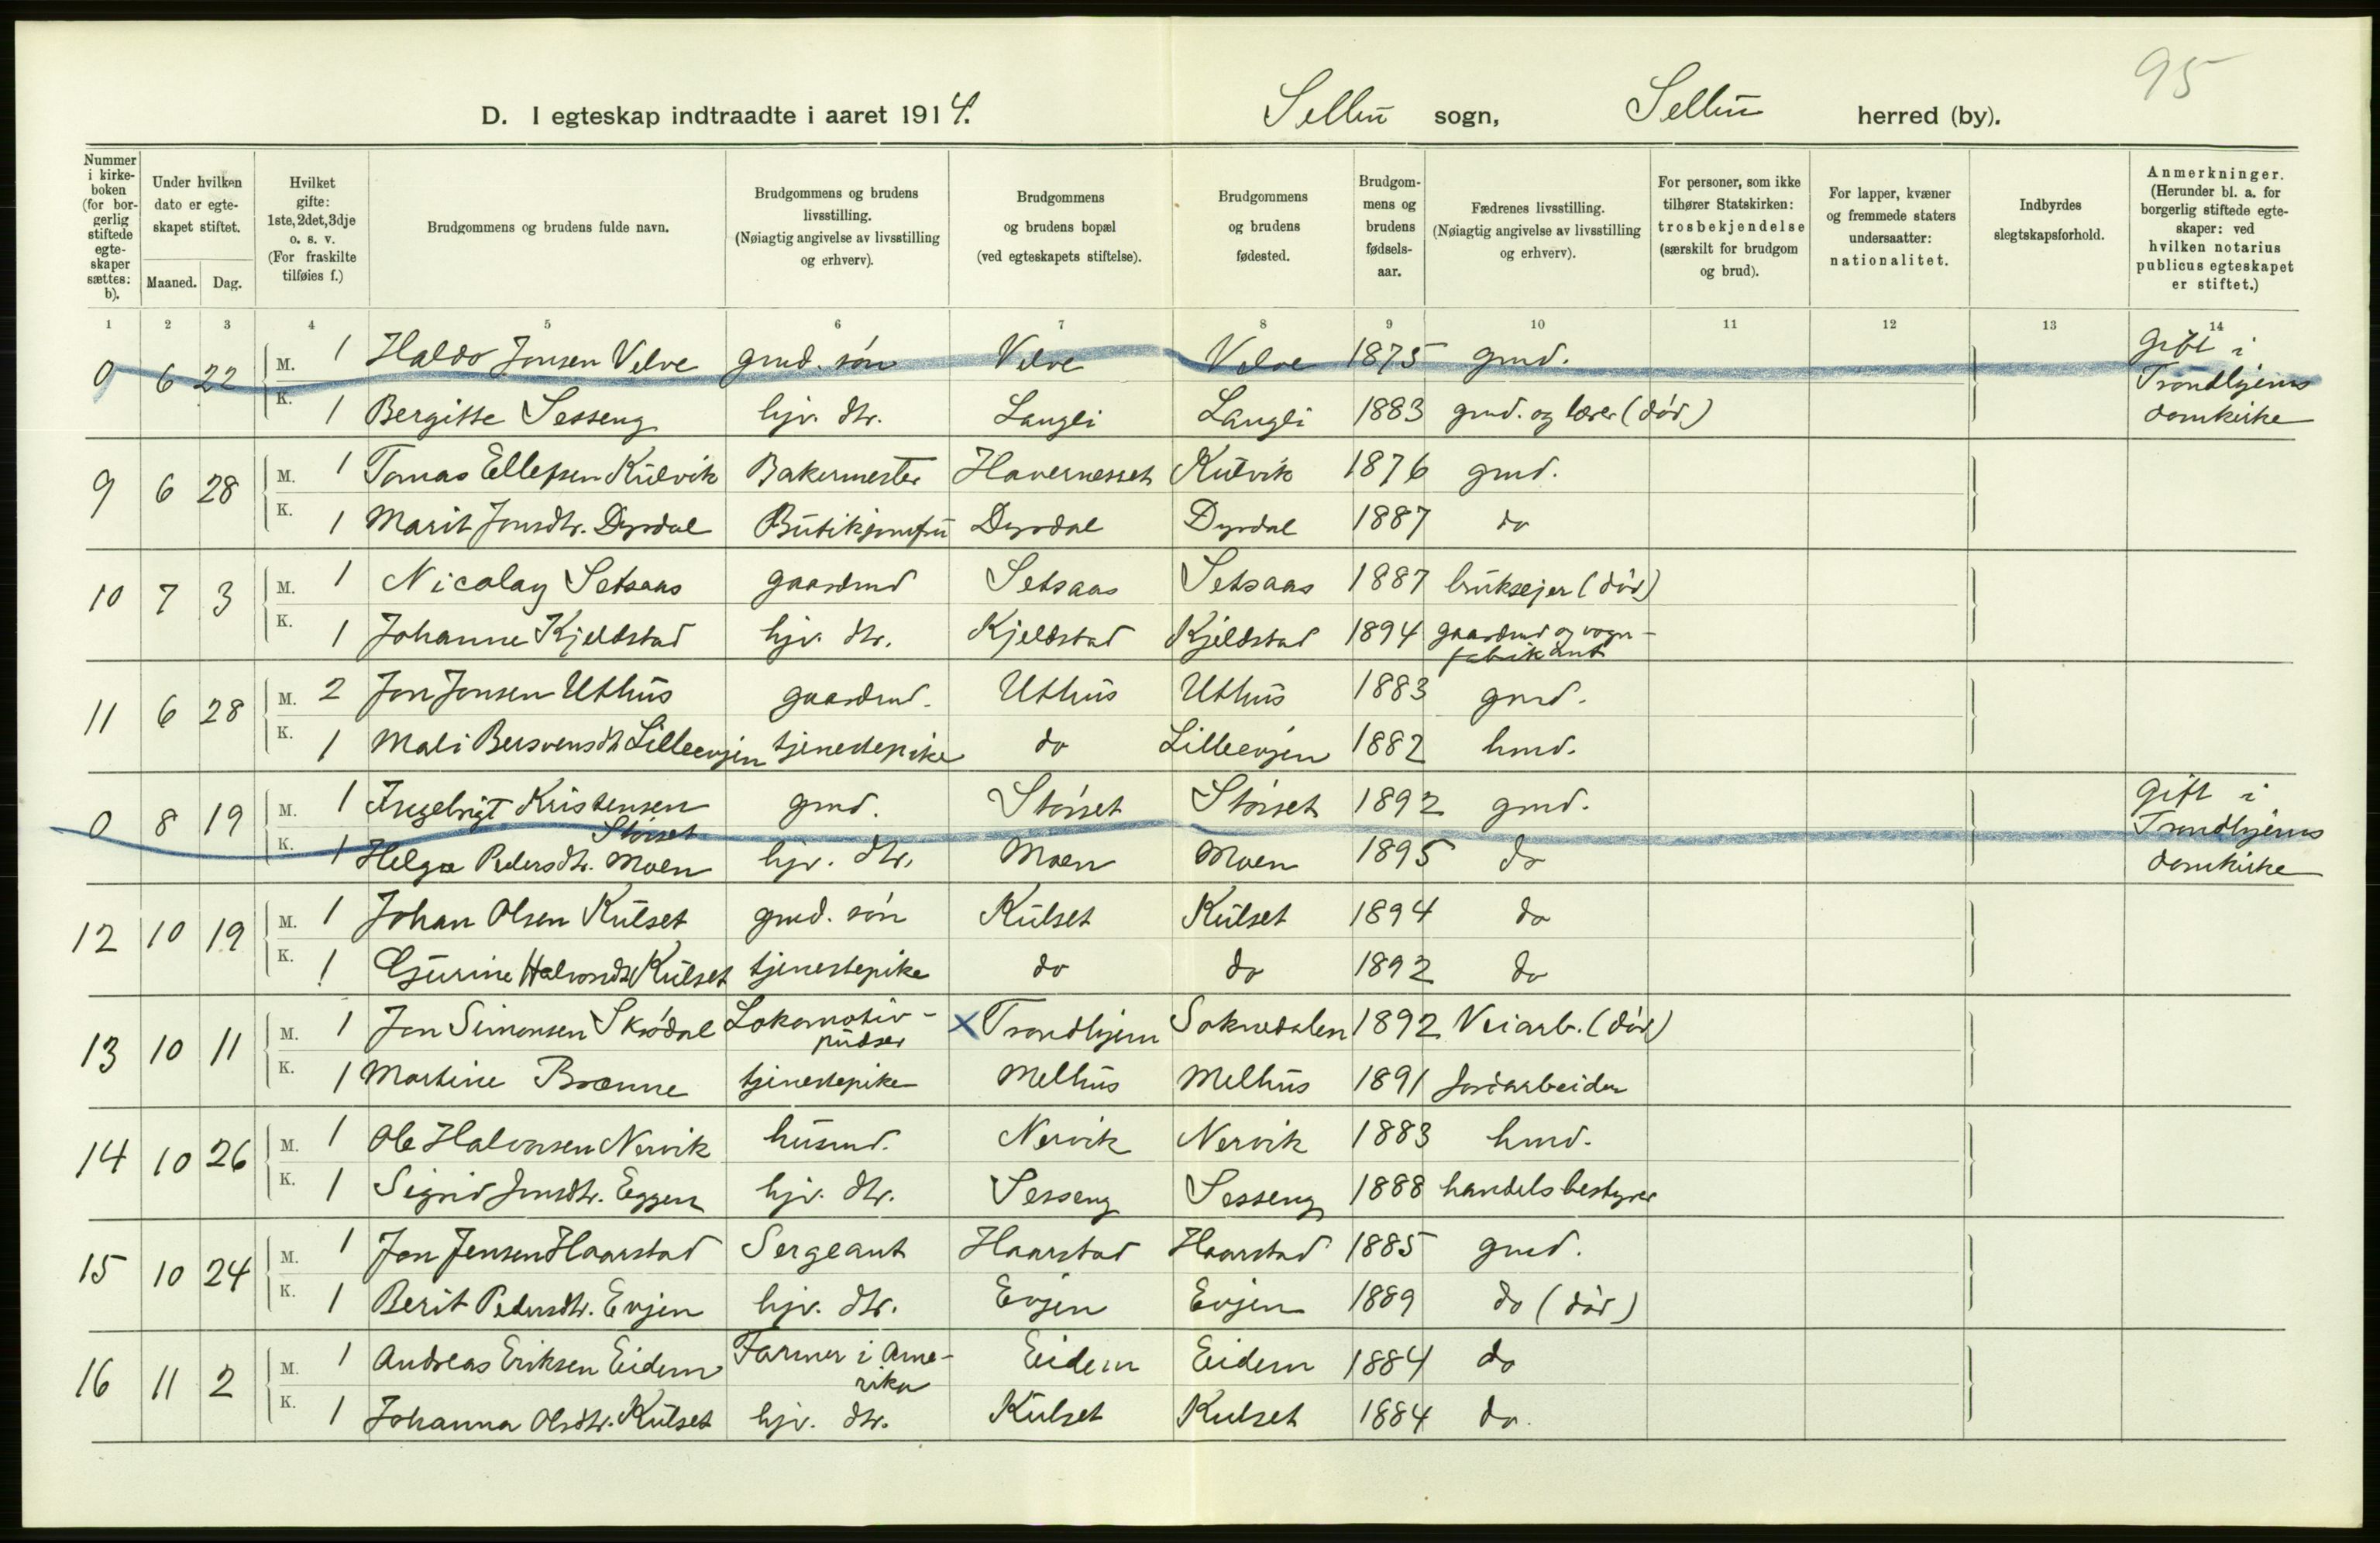 95
D. I egteskap indtraadte i aaret 1914. Selbu sogn, Selbu herred (by).
Nummer i kirke- boken (for bor- gerlig stiftede egte- skaper sættes: b).
Under hvilken dato er egte- skapet stiftet.
Maaned. Dag.
Hvilket gifte: 1ste, 2det, 3dje o. s. v. (For fraskilte tilføies f.)
Brudgommens og brudens fulde navn.
Brudgommens og brudens livsstilling. (Nøiagtig angivelse av livsstilling og erhverv).
Brudgommens og brudens bopæl (ved egteskapets stiftelse).
Brudgommens og brudens fødested.
Brudgom- mens og brudens fødsels- aar.
Fædrenes livsstilling. (Nøiagtig angivelse av livsstilling og erhverv).
For personer, som ikke tilhører Statskirken: trosbekjendelse (særskilt for brudgom og brud).
For lapper, kvæner og fremmede staters undersaatter: nationalitet.
Indbyrdes slegtskapsforhold.
Anmerkninger. (Herunder bl. a. for borgerlig stiftede egte- skaper: ved hvilken notarius publicus egteskapet er stiftet.)
1 2 3 4 5 6 7 8 9 10 11 12 13 14
0 6 22 M. 1 Haldo Jonsen Velve gmd. søn Velve Velve 1875 gmd. Gift i Trondhjems domkirke
K. 1 Bergitte Sesseng hjv. dtr. Langli Langli 1883 gmd. og lærer (død)
9 6 28 M. 1 Tomas Ellefsen Kulvik Bakermester Havernesset Kulvik 1876 gmd.
K. 1 Marit Jonsdtr. Dyrdal Butikjomfru Dyrdal Dyrdal 1887 do
10 7 3 M. 1 Nicolay Setsaas gaardmd Setsaas Setsaas 1887 bruksejer (død)
K. 1 Johanne Kjeldstad hjv. dtr. Kjeldstad Kjeldstad 1894 gaardmd og vogn- fabrikant
11 6 28 M. 2 Jon Jonsen Uthus gaardmd. Uthus Uthus 1883 gmd.
K. 1 Mali Bersvensdt Lilleevjen tjenestepike do Lilleevjen 1882 hmd.
0 8 19 M. 1 Ingebrigt Kristensen Størset gmd. Størset Størset 1892 gmd. Gift i Trondhjems domkirke
K. 1 Helga Pedersdtr. Moen hjv. dtr. Moen Moen 1895 do
12 10 19 M. 1 Johan Olsen Kulset gmd. søn Kulset Kulset 1894 do
K. 1 Gurine Halvorsdt Kulset tjenestepike do do 1892 do
13 10 11 M. 1 Jon Simonsen Skrødal Lokomotiv- pudser x Trondhjem Soknedalen 1892 Veiarb. (død)
K. 1 Martine Brænne tjenestepike Melhus Melhus 1891 Jordarbeider
14 10 26 M. 1 Ole Halvorsen Nervik husmd. Nervik Nervik 1883 hmd.
K. 1 Sigrid Jonsdtr. Eggen hjv. dtr. Sesseng Sesseng 1888 handelsbestyrer
15 10 24 M. 1 Jon Jensen Haarstad Sergeant Haarstad Haarstad 1885 gmd.
K. 1 Berit Pedersdtr. Evjen hjv. dtr. Evjen Evjen 1889 do (død)
16 11 2 M. 1 Andreas Eriksen Eidem Farmer i Ame- rika Eidem Eidem 1884 do
K. 1 Johanna Olsdtr. Kulset hjv. dtr. Kulset Kulset 1884 do.